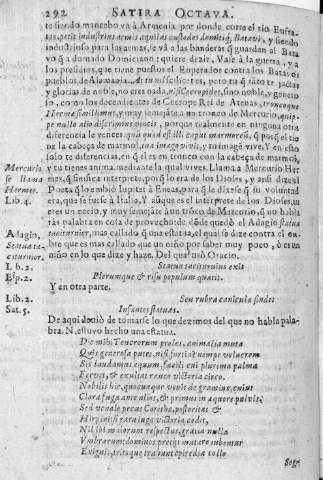 292 SATIRA OCTAVA.
tiendo mancebo và à Armenia por donde corre el rio Eufra-
tes, petit industrius armis aquilas custodes domiti Batavi, y siendo
industrioso para las armas, se và a las banderas que guardan al Bata
vo que a domado Domiciano: quiere dezir, Vale à la guerra, y a
los presidios, que tiene puestos el Emperador contra los Batavos
pueblos de Alemania. At tu
y glorias de noble, no eres nada, nisi Cecropides, sino noble, y genero
so, como los decendientes de Cecrope Rei de Atenas, truncoque
Hermæ simillimus, y mui semejante a un tronco de Mercurio, quip-
pe nullo alio discrimine vincis, porque realmente en ninguna otra
diferencia le vences, quàm quod est illi caput marmoreum, q̃ porq̃ el tie
ne la cabeça de marmol, tua imago vivit, y tu imagẽ vive. Y en esto
solo te diferencias, en q̃ el es en tronco con la cabeça de marmol,
y tu tienes anima mediante la qual vives. Llama a Mercurio Her
Mercurio
se llama
Hermes.
Lib. 4.
mes, q̃ sinifica interprete, porq̃ lo era de los Dioses, y assi dize el
Poeta q̃ lo embiò Iupiter à Eneas, para q̃ le dixesse q̃ su voluntad
era, que se fuesse à Italia, Y aũque es el interprete de los Dioses, si
eres un necio, y mui semejãte à un tronco de Mercurio, q̃ no habla
ràs palabra en cosa de provecho: de dõde quedò el Adagio statua
Adagio,
Statua ta-
citurnior.
taciturnior, mas callado q̃ una estatua, el qual se dize contra el õ-
bre que es mas callado que un niño por saber mui poco, ò es un
niño en lo que dize y haze. Del qual usò Oracio.
Lib. 2.
Statua taciturnius exit
Epi. 2.
Plerumque & risu populum quatit.
Y en otra parte.
Lib. 2.
Seu rubra canicula findet
Sat. 5.
Infantes statuas.
De aqui devio de tomarse lo que dezimos del que no habla pala-
bra. N. estuvo hecho una estatua.
Dic mihi Teucrorum proles, animalia muta
Quis generosa putet, nisi fortia? nempe volucrem
Sic laudamus equum, facili cui plurima palma
Fervet, & exultat rauco victoria circo.
Nobilis hic, quocunque venit de gramine, cuius
Clara fuga ante alios, & primus in æquore pulvis;
Sed venale pecus Corithæ, posteritas &
Hirpini: si rara iugo victoria sedit,
Nil ibi maiorum respectus, gratia nulla
Umbrarum: dominos pretiis mutare iubentur
Exiguis, tritoque trahunt epiredia collo
Segn